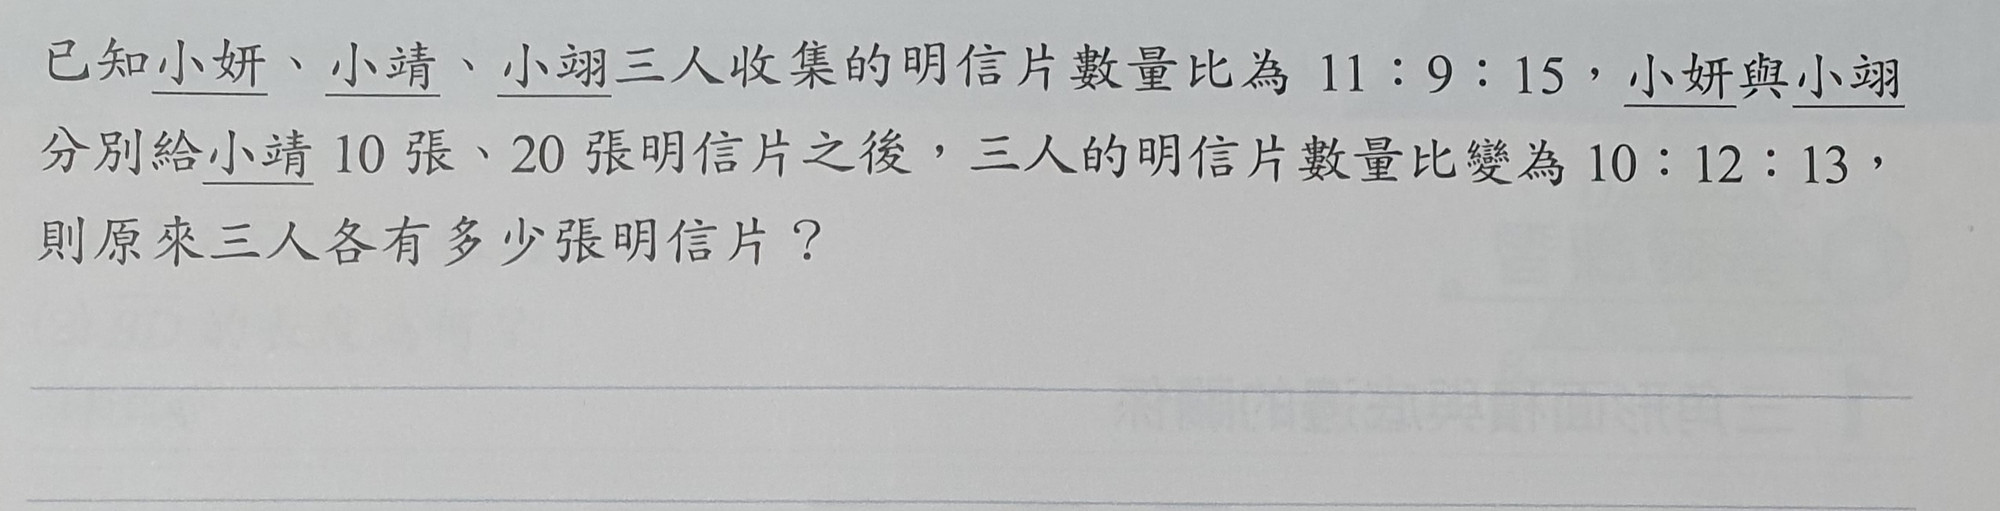 已知小妍、小靖、小翊三人收集的明信片數量比為 11：9：15，小妍與小翊
分別給小靖 10 張、20 張明信片之後，三人的明信片數量比變為 10：12：13，
則原來三人各有多少張明信片？
三角形面積與底邊的關係